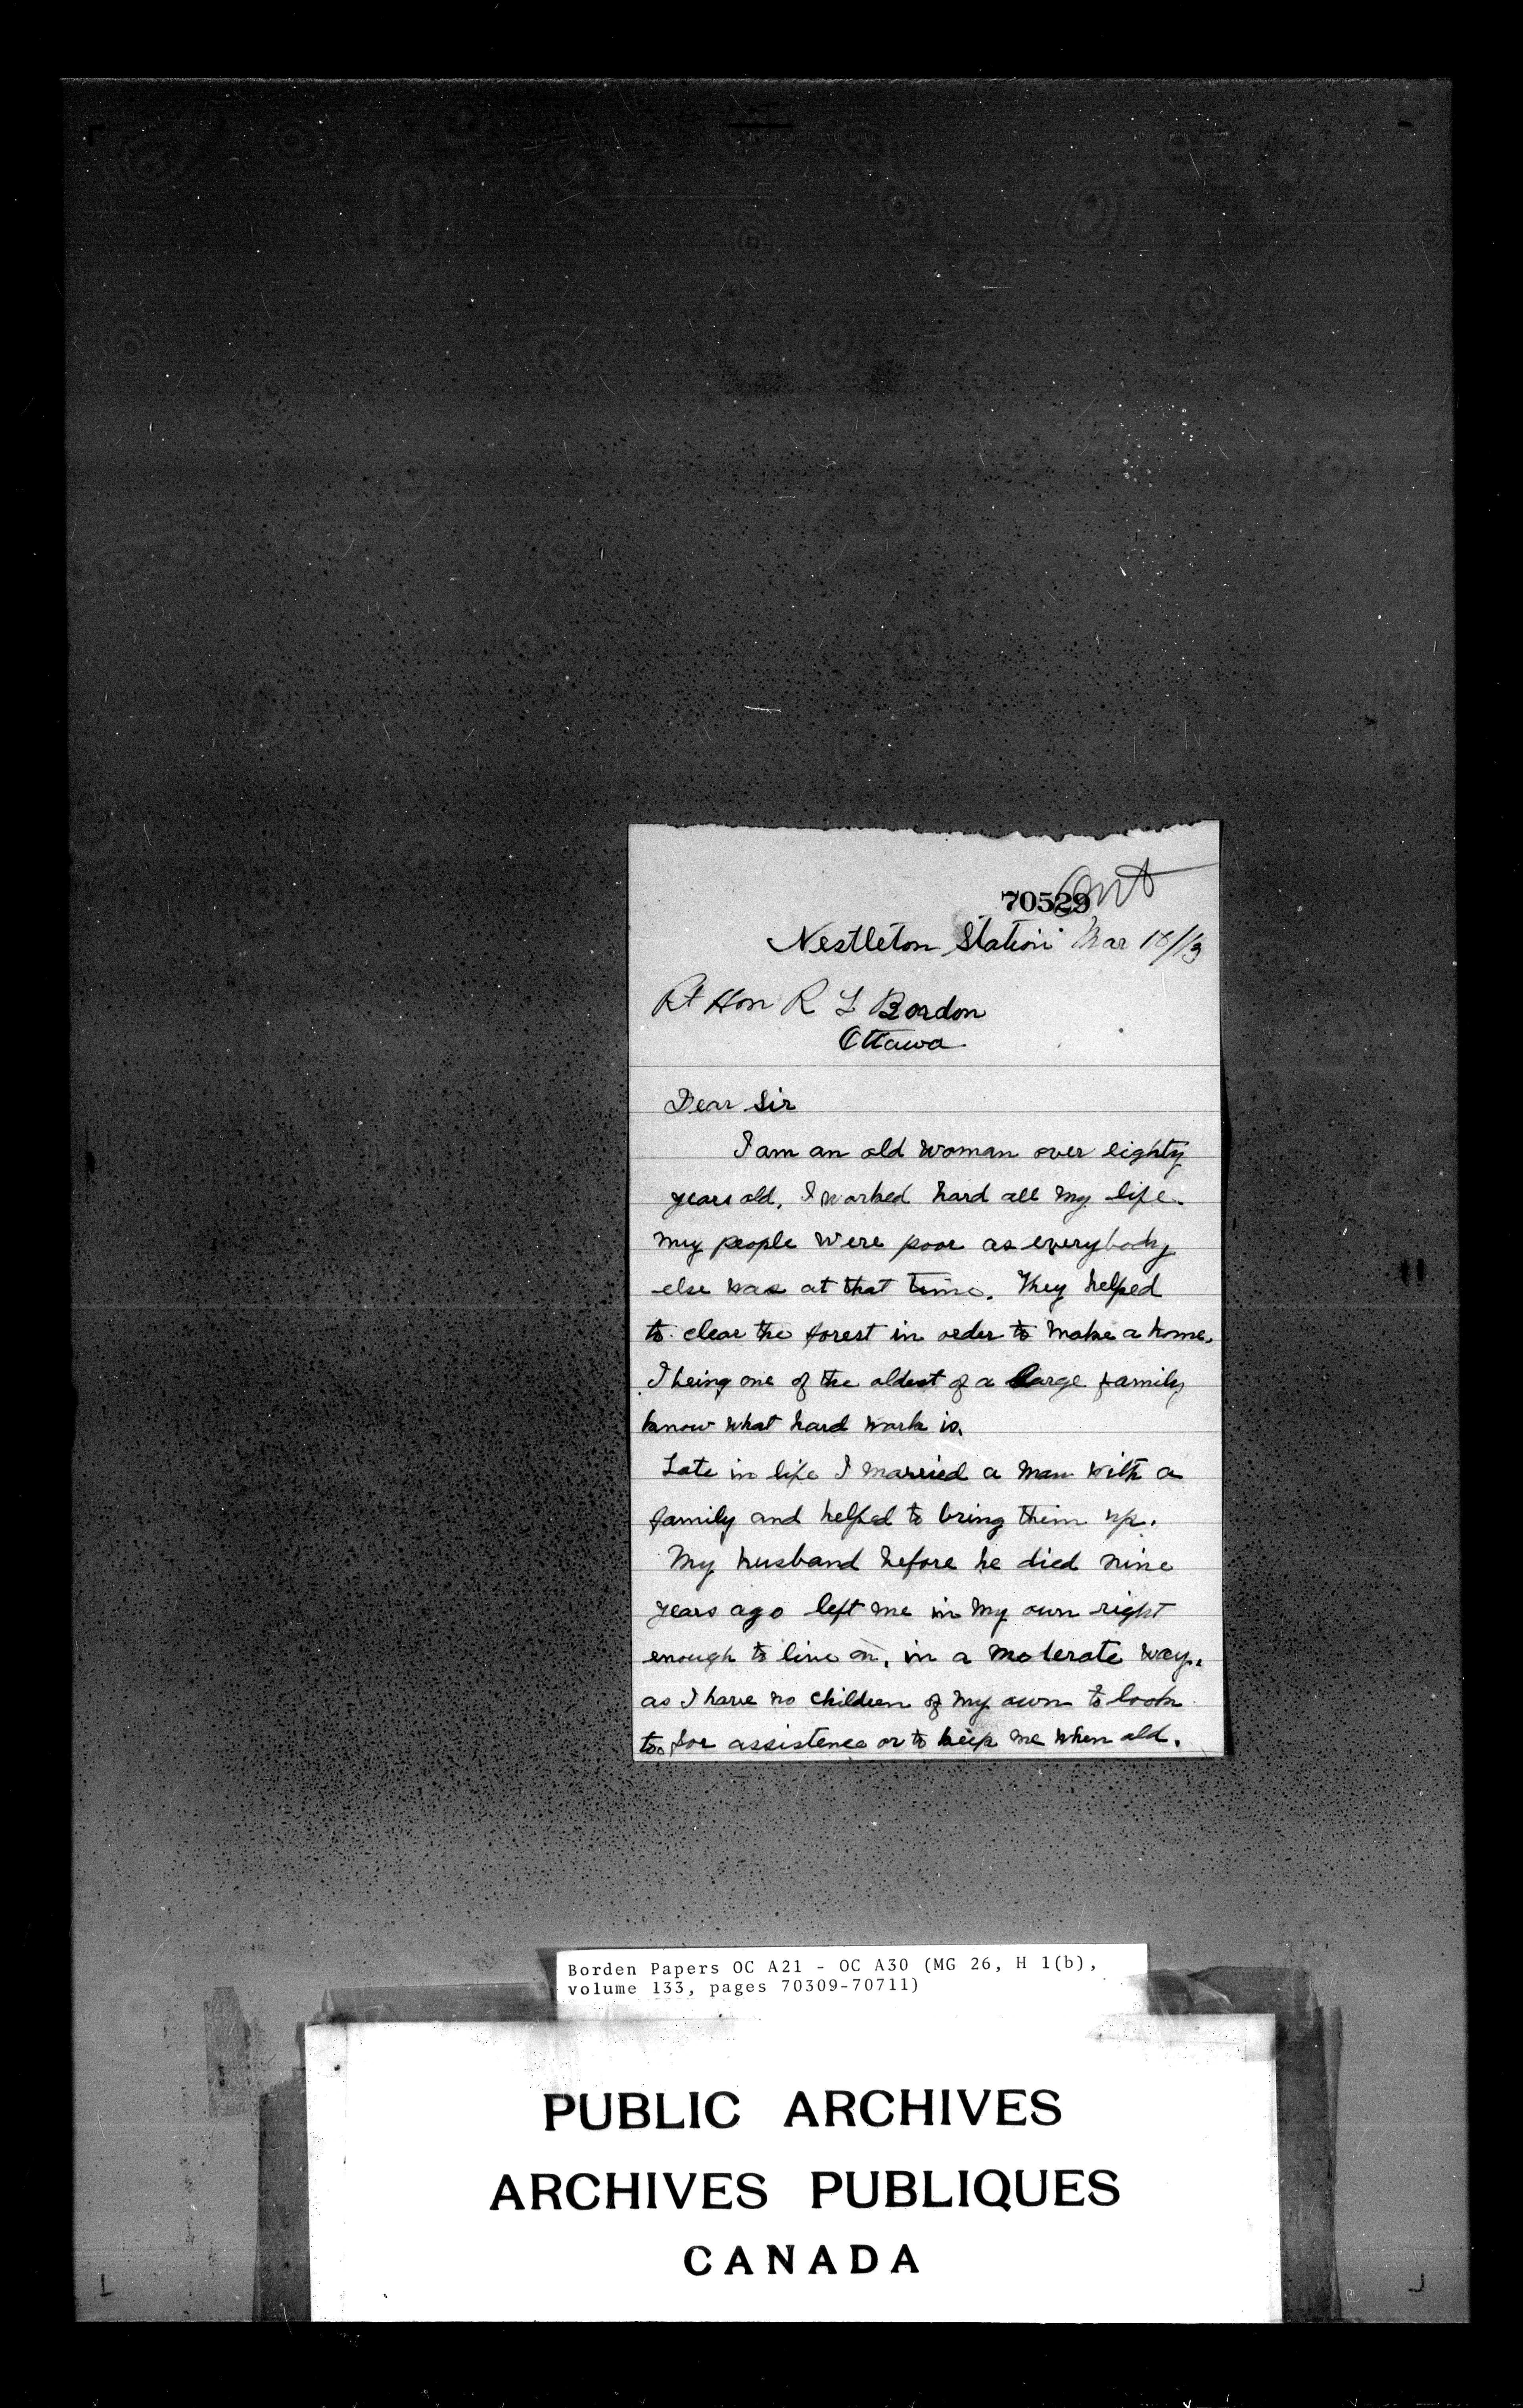 70529
Ont
Nestleton Station Mar 18/13
Rt Hon R L Bordon
Ottawa
Dear Sir
I am an old woman over eighty
years old. I worked hard all my life.
My people were poor as everybody
else was at that time. They helped
to clear the forest in order to make a home.
I being one of the oldest of a large family
know what hard work is.
Late in life I married a man with a
family and helped to bring them up.
My husband before he died nine
years ago left me in my own right
enough to live on, in a moderate way.
as I have no children of my own to look
to for assistence or to keep me when old.
Borden Papers OC A21 - OC A30 (MG 26, H 1(b),
volume 133, pages 70309-70711)
PUBLIC ARCHIVES
ARCHIVES PUBLIQUES
CANADA